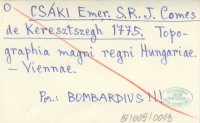 O CSÁKI Emer. S.R.J. Comes
de Keresztszegh 1775. Topo-
graphia magni regni Hungariae.
– Viennae.
Pos.: BOMBARDIUS !!!
B/009/0013